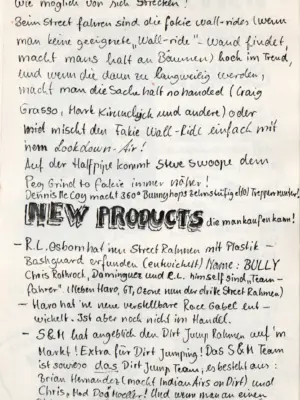 wie möglich von sich strecken!
Beim Street fahren sind die fakie wall-rides (wenn
man keine geeignete „Wall-ride"-Wand findet,
macht mans halt an Bäumen) hoch im Trend,
und wenn die dann zu langweilig werden,
macht man die Sache halt no handed (Craig
Grasso, und andere) oder
mischt den Fakie Wall-Ride einfach mit
nem Lookdown-Air!
Auf der Halfpipe kommt Steve Swoope dem
Peg Grind to fakie immer näher!
Dennis McCoy macht 360° Bunnyhops zehnstufige(10) Treppen runter!
NEW PRODUCTS die man kaufen kann!
- R.L. Osborn hat nen Street Rahmen mit Plastik-
Bashguard erfunden (entwickelt) Name: BULLY
Chris Rothrock, Dominguez und R.L. himself sind „Team-
fahrer". (Neben Haro, GT, Ozone nun der dritte Street Rahmen)
- Haro hat 'ne neue verstellbare Race Gabel ent-
wickelt. Ist aber noch nicht im Handel.
- S&M hat angeblich den Dirt Jump Rahmen auf'm
Markt! Extra für Dirt Jumping! Das S&M Team
ist sowieso das Dirt Jump Team, es besteht aus:
Brian Hernandez (macht Indian Airs on Dirt) und
Chris „Mad Dog" Moeller! Und wenn man an einen